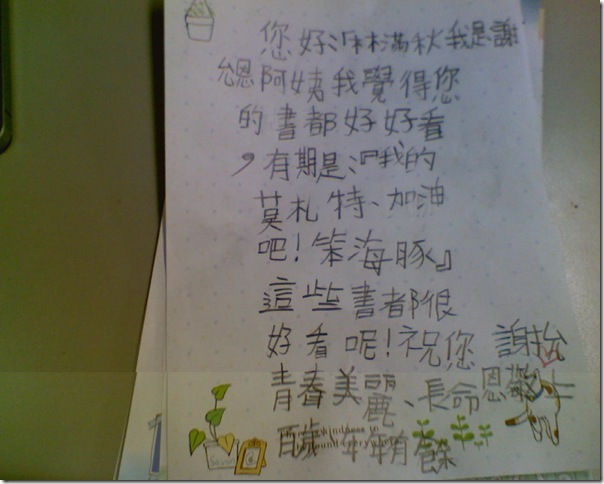 您好﹗林滿秋我是謝
恩阿姨我覺得您
的書都好好看
，有期是﹗『我的
莫札特、加油
吧!笨海豚』
這些書都很
好看呢!祝您 謝
青春美麗、長命 恩
百歲年年有餘
There is kindness in
found everywhere